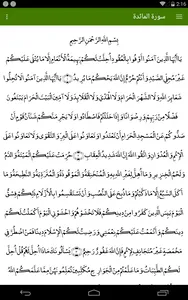 2:16
سورة المائدة
بِسْمِ اللَّهِ الرَّحْمَٰنِ الرَّحِيمِ
يَا أَيُّهَا الَّذِينَ آمَنُوا أَوْفُوا بِالْعُقُودِ أُحِلَّتْ لَكُم بَهِيمَةُ الْأَنْعَامِ إِلَّا مَا يُتْلَىٰ عَلَيْكُمْ
غَيْرَ مُحِلِّي الصَّيْدِ وَأَنتُمْ حُرُمٌ إِنَّ اللَّهَ يَحْكُمُ مَا يُرِيدُ ﴿١﴾ يَا أَيُّهَا الَّذِينَ آمَنُوا لَا تُحِلُّوا
شَعَائِرَ اللَّهِ وَلَا الشَّهْرَ الْحَرَامَ وَلَا الْهَدْيَ وَلَا الْقَلَائِدَ وَلَا آمِّينَ الْبَيْتَ الْحَرَامَ يَبْتَغُونَ
فَضْلًا مِّن رَّبِّهِمْ وَرِضْوَانًا وَإِذَا حَلَلْتُمْ فَاصْطَادُوا وَلَا يَجْرِمَنَّكُمْ شَنَآنُ قَوْمٍ أَن
صَدُّوكُمْ عَنِ الْمَسْجِدِ الْحَرَامِ أَن تَعْتَدُوا وَتَعَاوَنُوا عَلَى الْبِرِّ وَالتَّقْوَىٰ وَلَا تَعَاوَنُوا عَلَى
الْإِثْمِ وَالْعُدْوَانِ وَاتَّقُوا اللَّهَ إِنَّ اللَّهَ شَدِيدُ الْعِقَابِ ﴿٢﴾ حُرِّمَتْ عَلَيْكُمُ الْمَيْتَةُ وَالدَّمُ
وَلَحْمُ الْخِنزِيرِ وَمَا أُهِلَّ لِغَيْرِ اللَّهِ بِهِ وَالْمُنْخَنِقَةُ وَالْمَوْقُوذَةُ وَالْمُتَرَدِّيَةُ وَالنَّطِيحَةُ وَمَا
أَكَلَ السَّبُعُ إِلَّا مَا ذَكَّيْتُمْ وَمَا ذُبِحَ عَلَى النُّصُبِ وَأَن تَسْتَقْسِمُوا بِالْأَزْلَامِ ذَٰلِكُمْ فِسْقٌ
الْيَوْمَ يَئِسَ الَّذِينَ كَفَرُوا مِن دِينِكُمْ فَلَا تَخْشَوْهُمْ وَاخْشَوْنِ الْيَوْمَ أَكْمَلْتُ لَكُمْ
دِينَكُمْ وَأَتْمَمْتُ عَلَيْكُمْ نِعْمَتِي وَرَضِيتُ لَكُمُ الْإِسْلَامَ دِينًا فَمَنِ اضْطُرَّ فِي
مَخْمَصَةٍ غَيْرَ مُتَجَانِفٍ لِّإِثْمٍ فَإِنَّ اللَّهَ غَفُورٌ رَّحِيمٌ ﴿٣﴾ يَسْأَلُونَكَ مَاذَا أُحِلَّ لَهُمْ قُلْ أُحِلَّ
لَكُمُ الطَّيِّبَاتُ وَمَا عَلَّمْتُم مِّنَ الْجَوَارِحِ مُكَلِّبِينَ تُعَلِّمُونَهُنَّ مِمَّا عَلَّمَكُمُ اللَّهُ